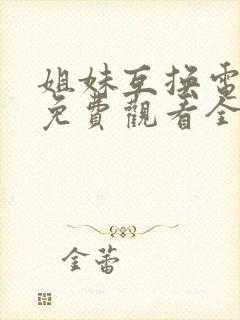 姐妹互换電
免費觀看全
金蕾